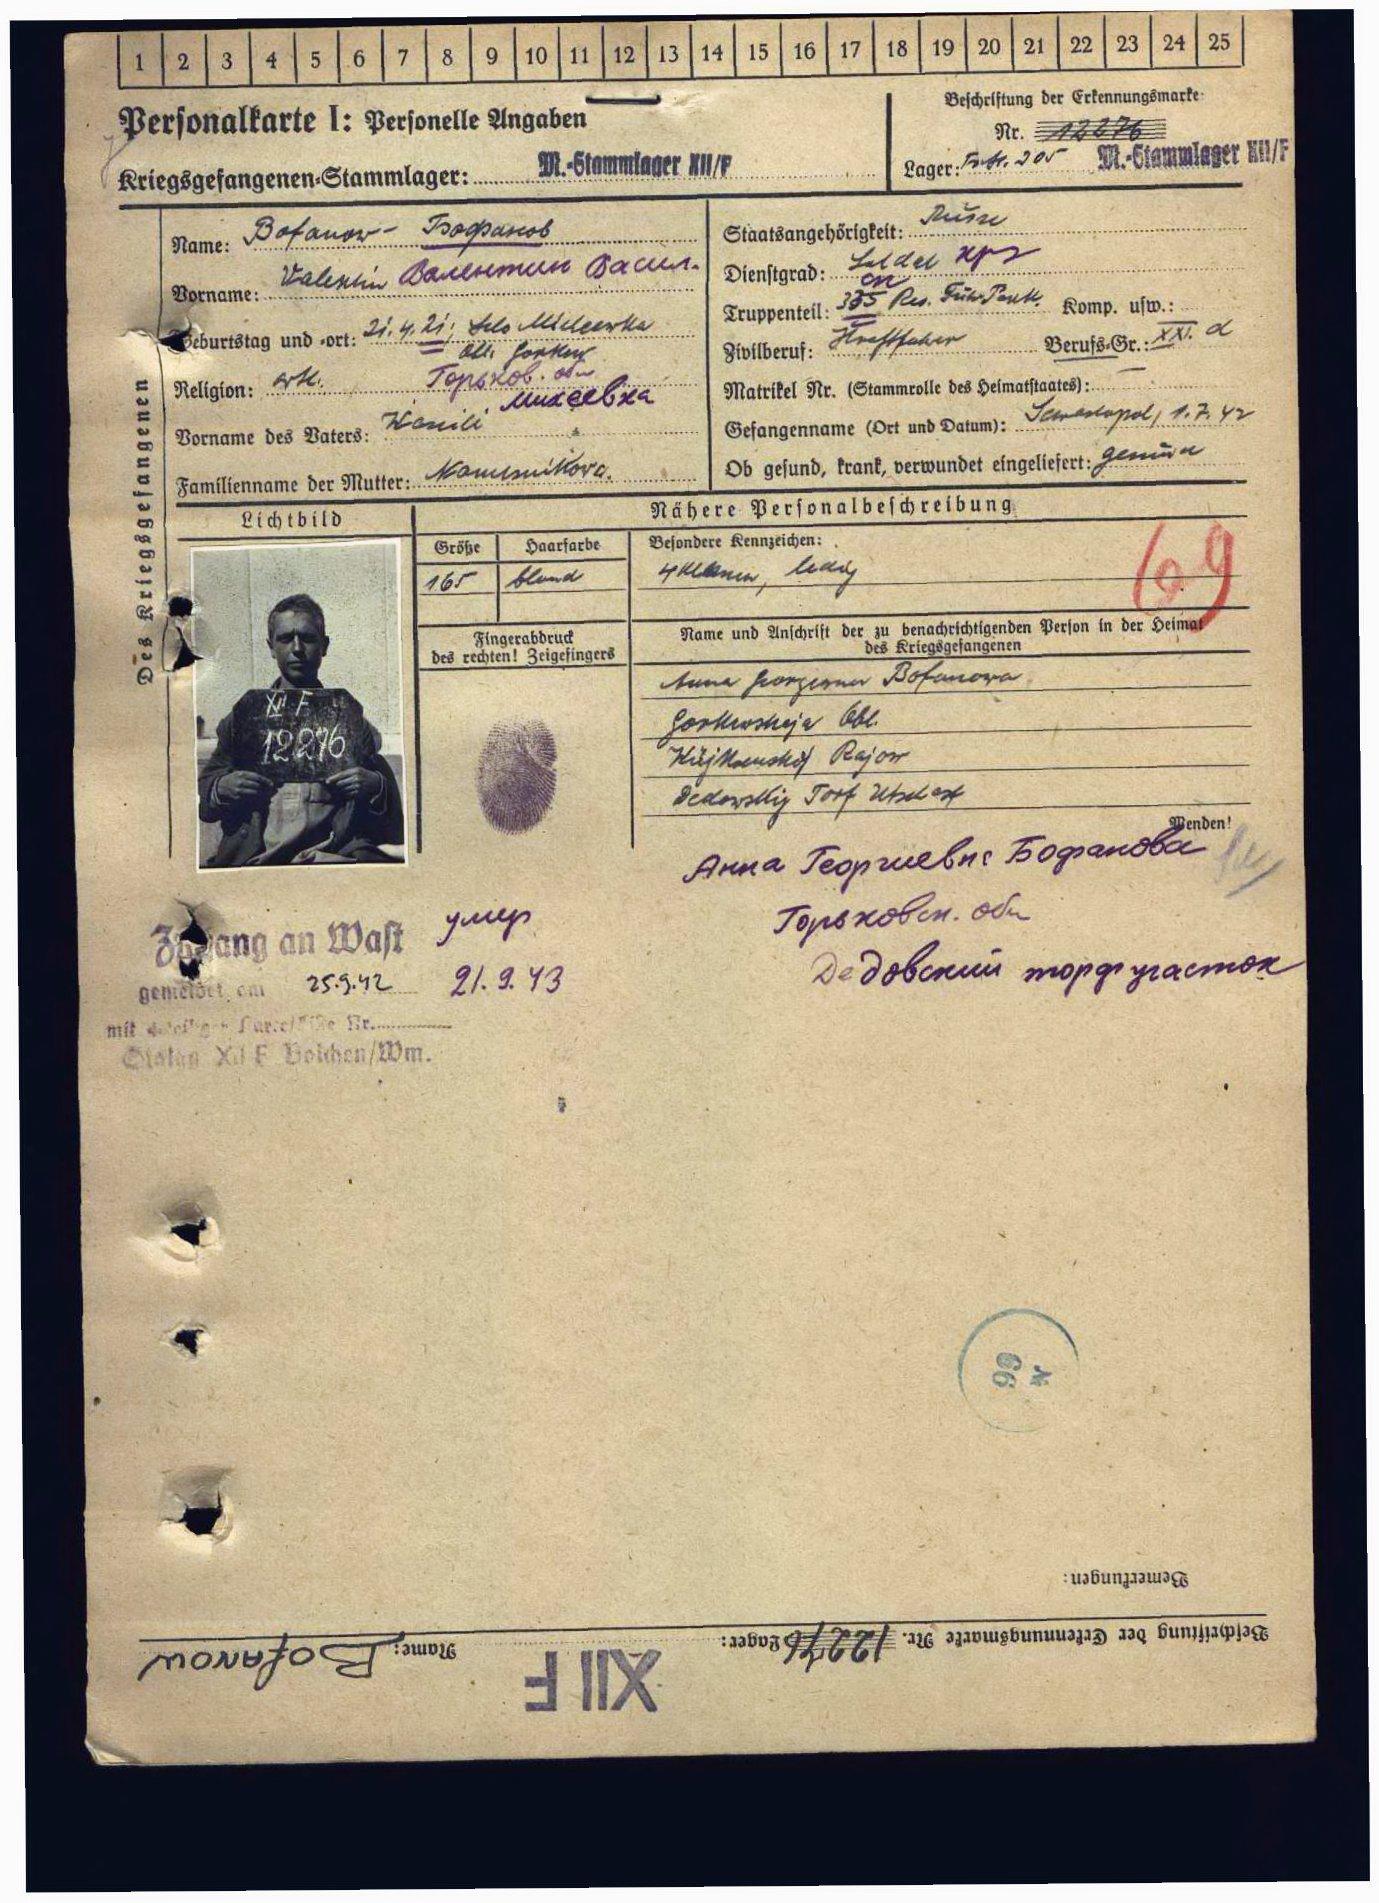 1 2 3 4 5 6 7 8 9 10 11 12 13 14 15 16 17 18 19 20 21 22 23 24 25
Personalkarte I: Personelle Angaben
Kriegsgefangenen-Stammlager: M.-Stammlager XII/F
Beschriftung der Erkennungsmarke
Nr. 12276
Lager: 205 M.-Stammlager XII/F
Des Kriegsgefangenen
Name: Bofanow - Бофанов
Vorname: Valentin Валентин Васил.
Geburtstag und -ort: 21.4.21, Selo Micheewka
Obl. Gorkow
Religion: orth. Горьков. обл
Михеевка
Vorname des Vaters: Wasili
Familienname der Mutter:
Staatsangehörigkeit: Russe
Dienstgrad: Soldat кр
Truppenteil: Res. Komp. usw.:
Zivilberuf: Kraftfahrer Berufs-Gr.: XXI. d
Matrikel Nr. (Stammrolle des Heimatstaates): —
Gefangenname (Ort und Datum): Sewastopol, 1.7.42
Ob gesund, krank, verwundet eingeliefert: gesund
Lichtbild
Nähere Personalbeschreibung
Größe Haarfarbe
165 blond
Besondere Kennzeichen:
4 Klassen, ledig
69
Fingerabdruck
des rechten! Zeigefingers
Name und Anschrift der zu benachrichtigenden Person in der Heimat
des Kriegsgefangenen
Anna Georgiewna Bofanowa
Gorkowskaja Obl.
Rajon
Dedowskij Torf
XII F
12276
Wenden!
Анна Георгиевна Бофанова
Горьковск. обл
Дедовский торфучасток
Zugang an Wast
gemeldet am 25.9.42
mit Nr.
Stalag XII F Bolchen/Wm.
умер
21.9.43
99
W
Bemerkungen:
Beschriftung der Erkennungsmarke Nr. 12276 Lager:
XII F
Name: Bofanow